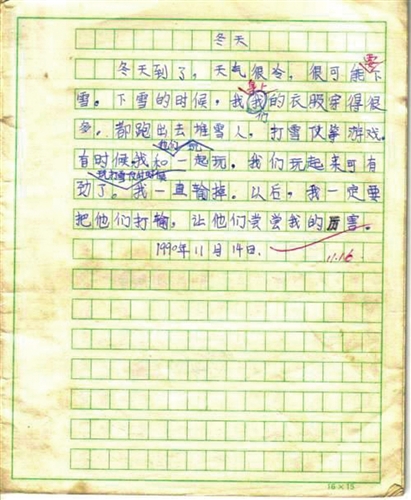 冬天
冬天到了，天气很冷，很可能下
要
雪。下雪的时候，我我的衣服穿得很
们
多，都跑出去堆雪人，打雪仗等游戏。
有时候我和一起玩。我们玩起来可有
劲了。我一直输掉。以后，我一定要
把他们打输，让他们尝尝我的厉害。
1990年11月14日.
11.16
16×15